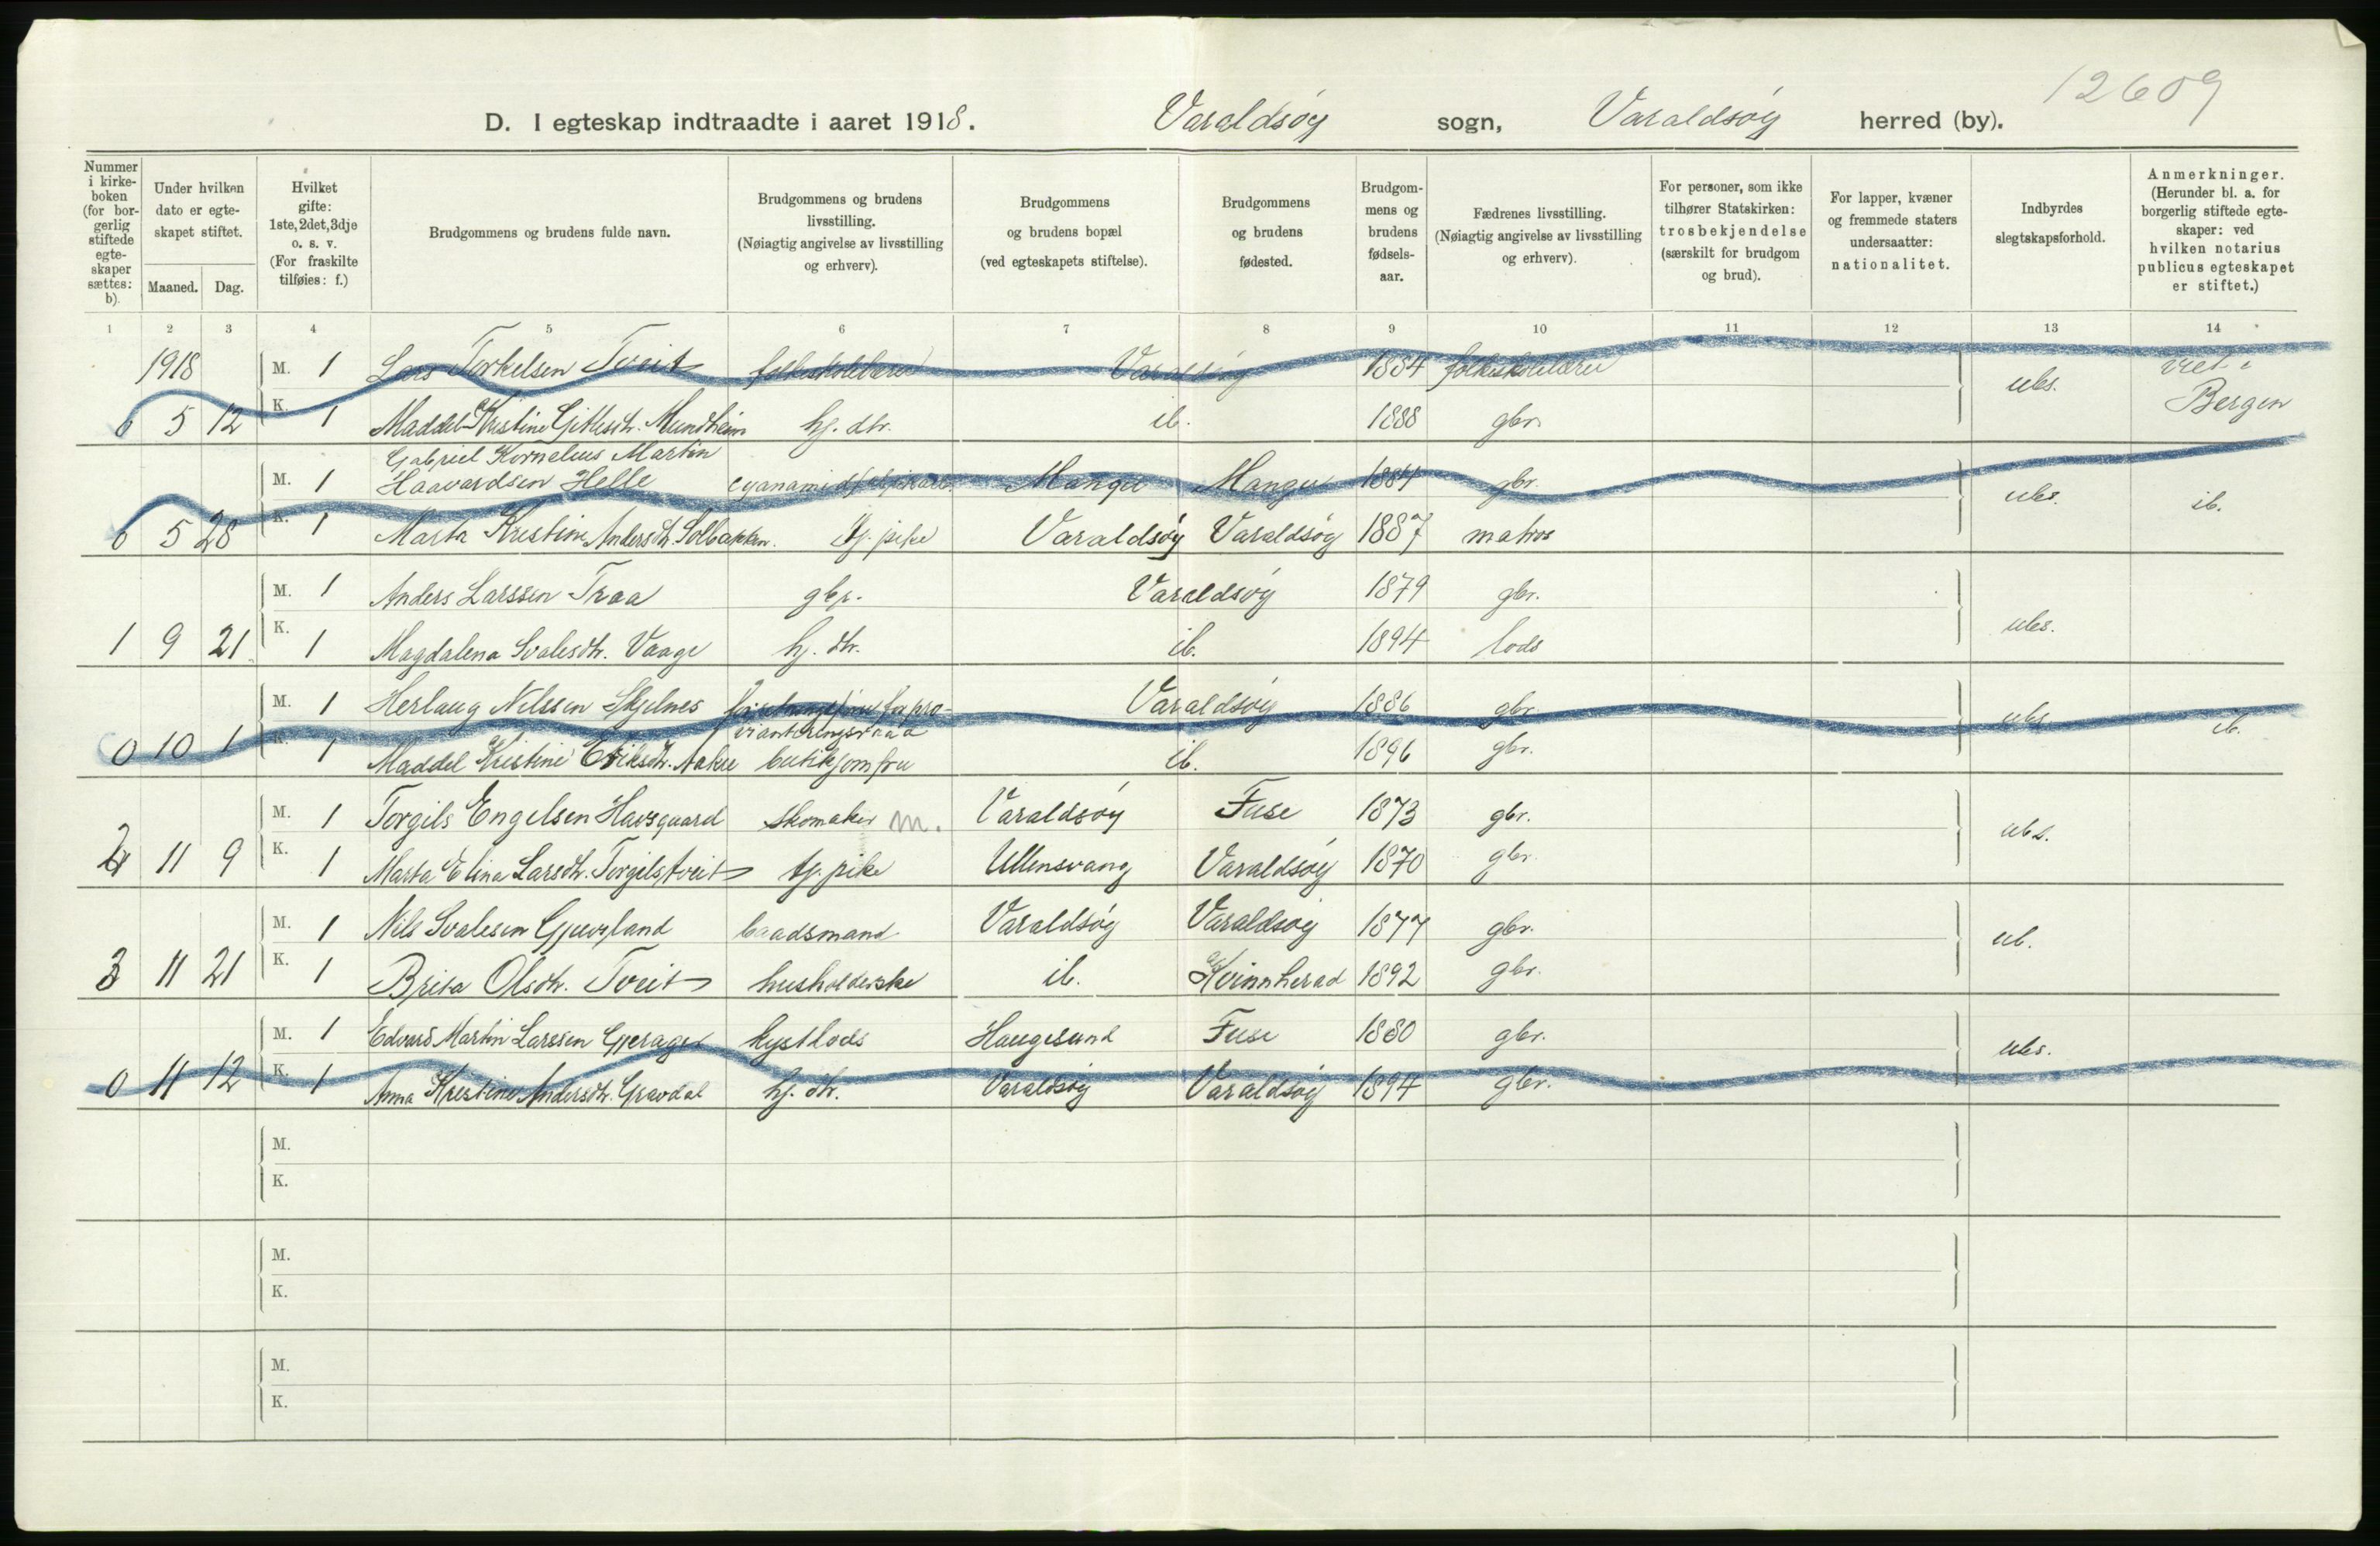 12609
D. I egteskap indtraadte i aaret 1918. Varaldsøy sogn, Varaldsøy herred (by).
Nummer i kirke-boken (for bor-gerlig stiftede egte-skaper sættes: b).
Under hvilken dato er egte-skapet stiftet.
Maaned. Dag.
Hvilket gifte: 1ste, 2det, 3dje o. s. v. (For fraskilte tilføies: f.)
Brudgommens og brudens fulde navn.
Brudgommens og brudens livsstilling. (Nøiagtig angivelse av livsstilling og erhverv).
Brudgommens og brudens bopæl (ved egteskapets stiftelse).
Brudgommens og brudens fødested.
Brudgom-mens og brudens fødsels-aar.
Fædrenes livsstilling. (Nøiagtig angivelse av livsstilling og erhverv).
For personer, som ikke tilhører Statskirken: trosbekjendelse (særskilt for brudgom og brud).
For lapper, kvæner og fremmede staters undersaatter: nationalitet.
Indbyrdes slegtskapsforhold.
Anmerkninger. (Herunder bl. a. for borgerlig stiftede egte-skaper: ved hvilken notarius publicus egteskapet er stiftet.)
1 2 3 4 5 6 7 8 9 10 11 12 13 14
1918 M. 1 Lars Torkelsen Tveit folkeskolelærer Varaldsøy 1884 folkeskolelærer ubs. viet i Bergen
6 5 12 K. 1 Maddel Kristine Gitlesdtr. Mundheim hj. dtr. ib. 1888 gbr.
Gabriel Kornelius Martin
M. 1 Haavardsen Helle Manger Manger 1884 gbr. ubs. ib.
6 5 28 K. 1 Marta Kristine Andersdtr. Solbakken. tj. pike Varaldsøy Varaldsøy 1887 matros
M. 1 Anders Larssen Traa gbr. Varaldsøy 1879 gbr. ubs.
1 9 21 K. 1 Magdalena Svalesdtr. Vaage hj. dtr. ib. 1894 lods
M. 1 Herlaug Nilssen Skjelnes for pro-
vianteringsraad Varaldsøy 1886 gbr. ubs. ib.
0 10 1 K. 1 Maddel Kristine Eriksdtr. Aakre butikjomfru ib. 1896 gbr.
M. 1 Torgils Engelsen Havsgaard skomaker m. Varaldsøy Fuse 1873 gbr. ubs.
2 11 9 K. 1 Marta Elina Larsdtr. Torgilstveit tj. pike Ullensvang Varaldsøy 1870 gbr.
M. 1 Nils Svalesen Gjuvsland baadsmand Varaldsøy Varaldsøy 1877 gbr. ub.
3 11 21 K. 1 Brita Olsdtr. Tveit husholderske ib. Kvinnherad 1892 gbr.
M. 1 Edvard Martin Larssen Gjerager kystlods Haugesund Fuse 1880 gbr. ubs.
0 11 12 K. 1 Anna Kristine Andersdtr. Gravdal hj. dtr. Varaldsøy Varaldsøy 1894 gbr.
M.
K.
M.
K.
M.
K.